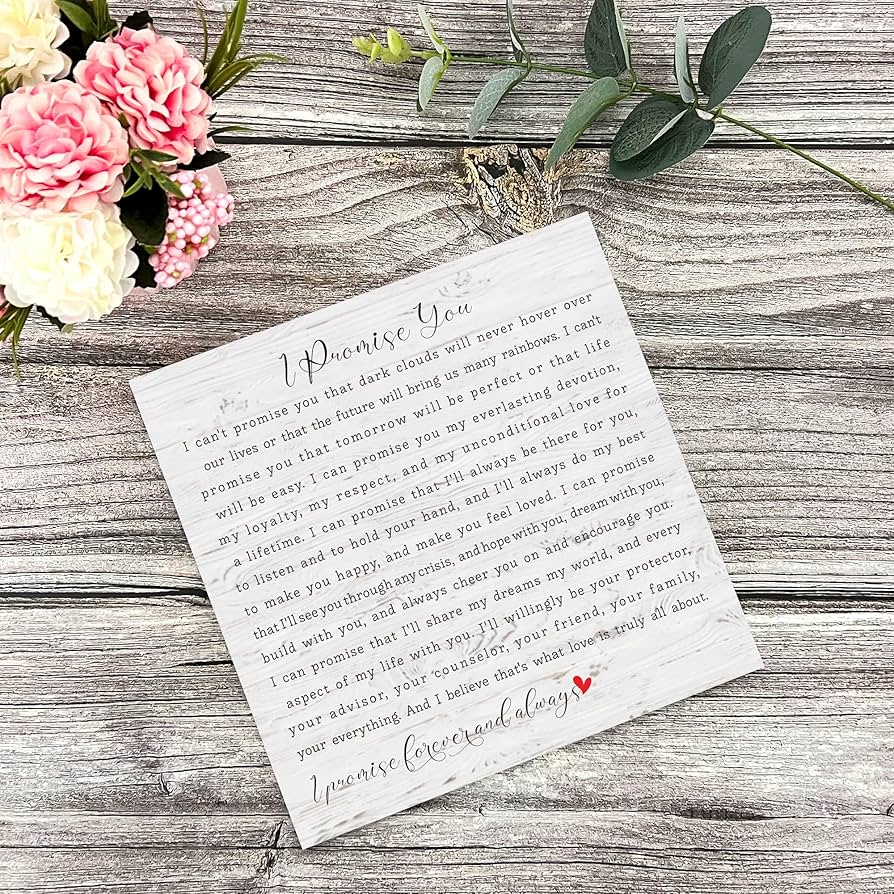 I Promise You
I can't promise you that dark clouds will never hover over
our lives or that the future will bring us many rainbows. I can't
promise you that tomorrow will be perfect or that life
will be easy. I can promise you my everlasting devotion,
my loyalty, my respect, and my unconditional love for
a lifetime. I can promise that I'll always be there for you,
to listen and to hold your hand, and I'll always do my best
to make you happy, and make you feel loved. I can promise
that I'll see you through any crisis, and hope with you, dream with you,
build with you, and always cheer you on and encourage you.
I can promise that I'll share my dreams my world, and every
aspect of my life with you. I'll willingly be your protector,
your advisor, your counselor, your friend, your family,
your everything. And I believe that's what love is truly all about.
I promise forever and always